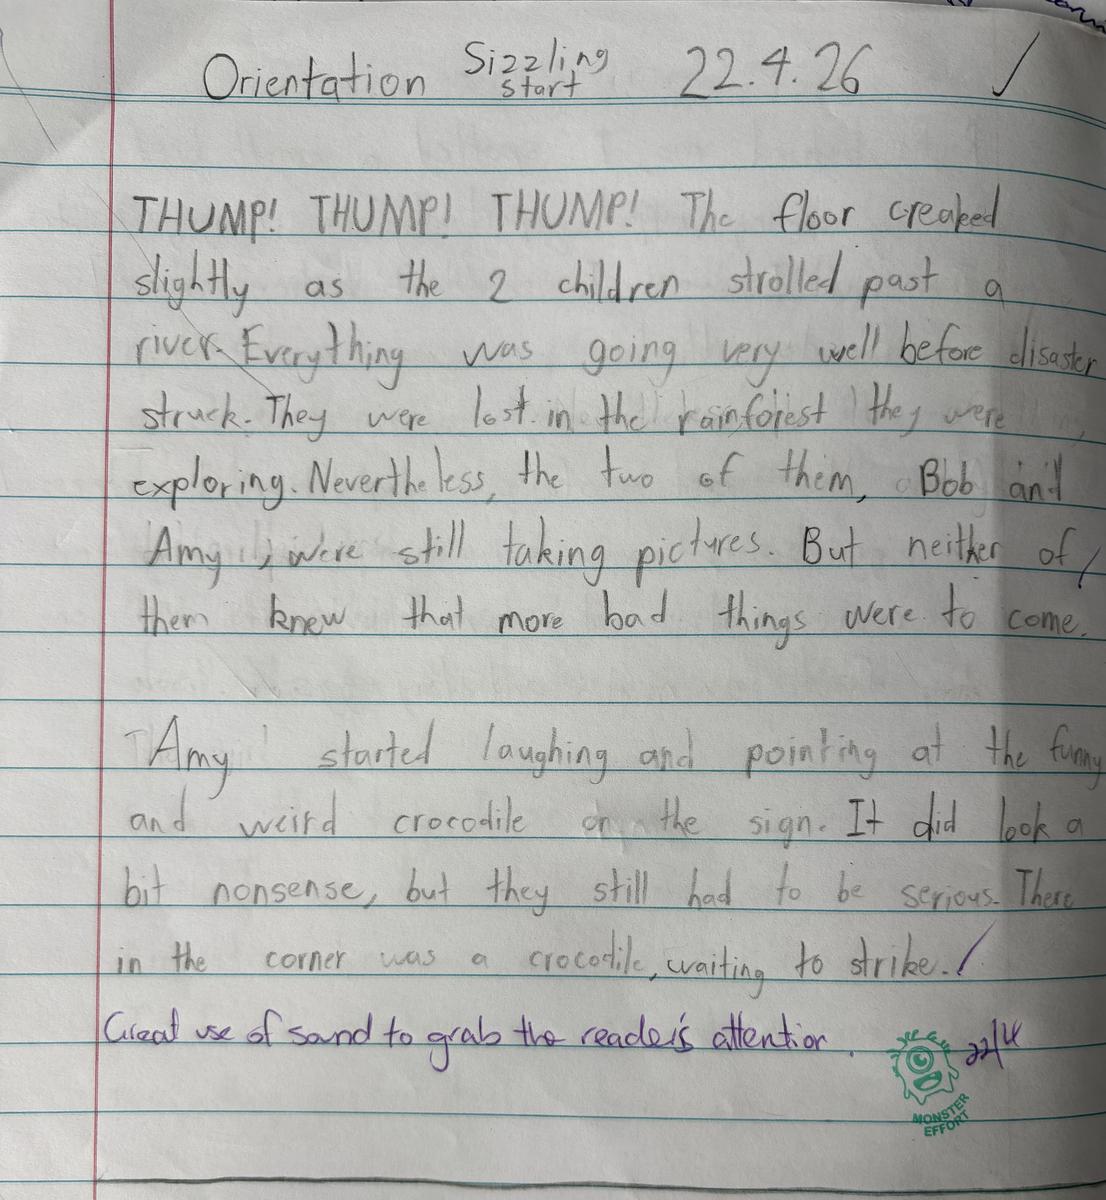 Orientation Sizzling start 22.4.26
THUMP! THUMP! THUMP! The floor creaked
slightly as the 2 children strolled past a
river. Everything was going very well before disaster
struck. They were lost in the rainforest they were
exploring. Nevertheless, the two of them, Bob and
Amy, were still taking pictures. But neither of
them knew that more bad things were to come.
Amy started laughing and pointing at the funny
and weird crocodile on the sign. It did look a
bit nonsense, but they still had to be serious. There
in the corner was a crocodile, waiting to strike.
Great use of sound to grab the reader's attention. 22/4
MONSTER
EFFORT